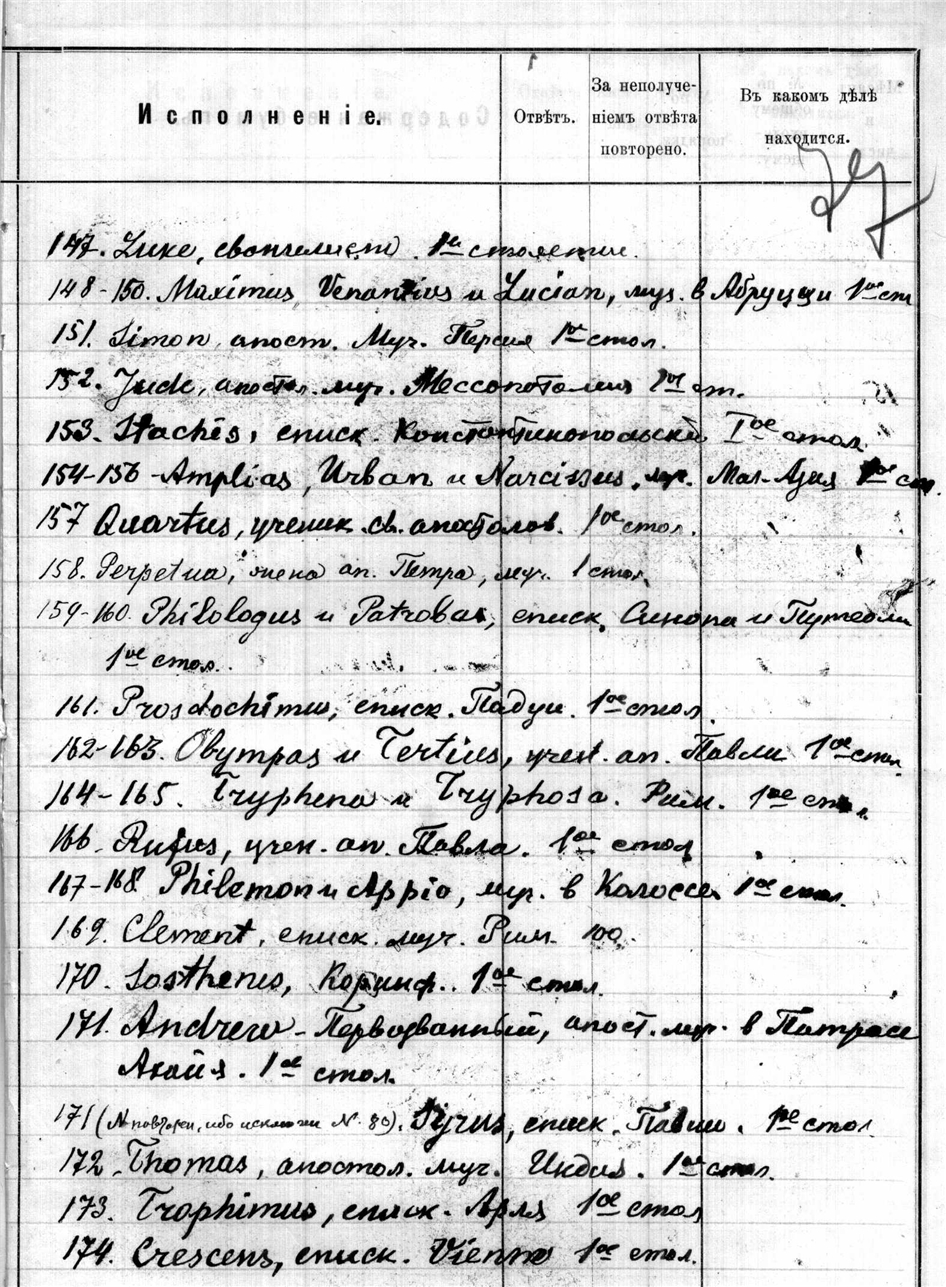 Исполненіе.
Отвѣтъ.
За неполуче-
ніемъ отвѣта
повторено.
Въ какомъ дѣлѣ
находится.
147. Luke, евангелист. 1ое столетие.
148-150. Maximus, Venantius и Lucian, муч. в Абруцци 1ое ст
151. Simon апост. Муч. Персия 1ое стол.
152. Jude, апостол. муч. Мессопотамия 1ое ст.
153. Stachis, еписк. Константинопольский Iое стол.
154-156 - Amplias, Urban и Narcissus, муч. Мал. Азия 1ое стол.
157 Quartus, ученик св. апостолов. 1ое стол.
158. Perpetua, жена ап. Петра, муч. 1 стол.
159-160. Philologus и Patrobas, еписк. Синопа и Путеоли
1ое стол.
161. Prosdochimus, еписк. Падуи. 1ое стол.
162-163. Olympas и Tertius, учен. ап. Павла 1ое стол.
164-165. Tryphena и Tryphosa. Рим. 1ое стол.
166. Rufus, учен. ап. Павла. 1ое стол
167-168 Philemon и Appia, муч. в Колоссе 1ое стол.
169. Clement, еписк. муч. Рим. 100.
170. Sosthenes, Коринф. 1ое стол.
171. Andrew - Первозванный, апост. муч. в Патрасе
Ахайя. 1ое стол.
171 (N повторен, ибо исключен N. 80). Syrus, еписк. Павии. 1ое стол.
172. Thomas, апостол. муч. Индия. 1ое стол.
173. Trophimus, еписк. Арля 1ое стол
174. Crescens, еписк. Vienne 1ое стол.